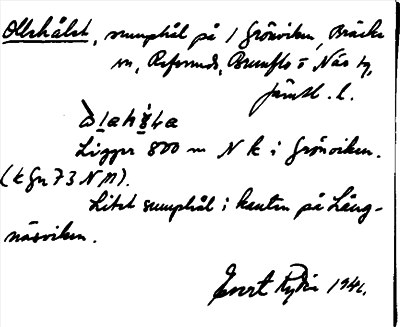 Ollehålet, sumphål på 1 Grönviken, Bräcke
sn, Refsunds, Brunflo o Näs tg,
Jämtl. l.
Ligger 800 m N k i Grönviken.
(t Gn 73 NM).
Litet sumphål i kanten på Lång-
näsviken.
Evert 1941.